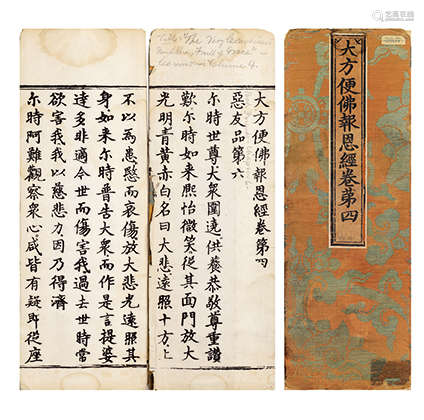 大方便佛報恩經卷第四
Title "The Very
Buddha, Fruit of Grace"
Volume 4.
大方便佛報恩經卷第四
惡友品第六
尒時世尊大衆圍遶供養恭敬尊重讚
歎尒時如來熙怡微笑從其面門放大
光明青黃赤白名曰大悲遠照十方上
不以為患慜而哀傷放大悲光遠照其
身如來尒時普告大衆而作是言提婆
達多非適今世而傷害我過去世時常
欲害我我以慈悲力因乃得濟
尒時阿難觀察衆心咸皆有疑即從座